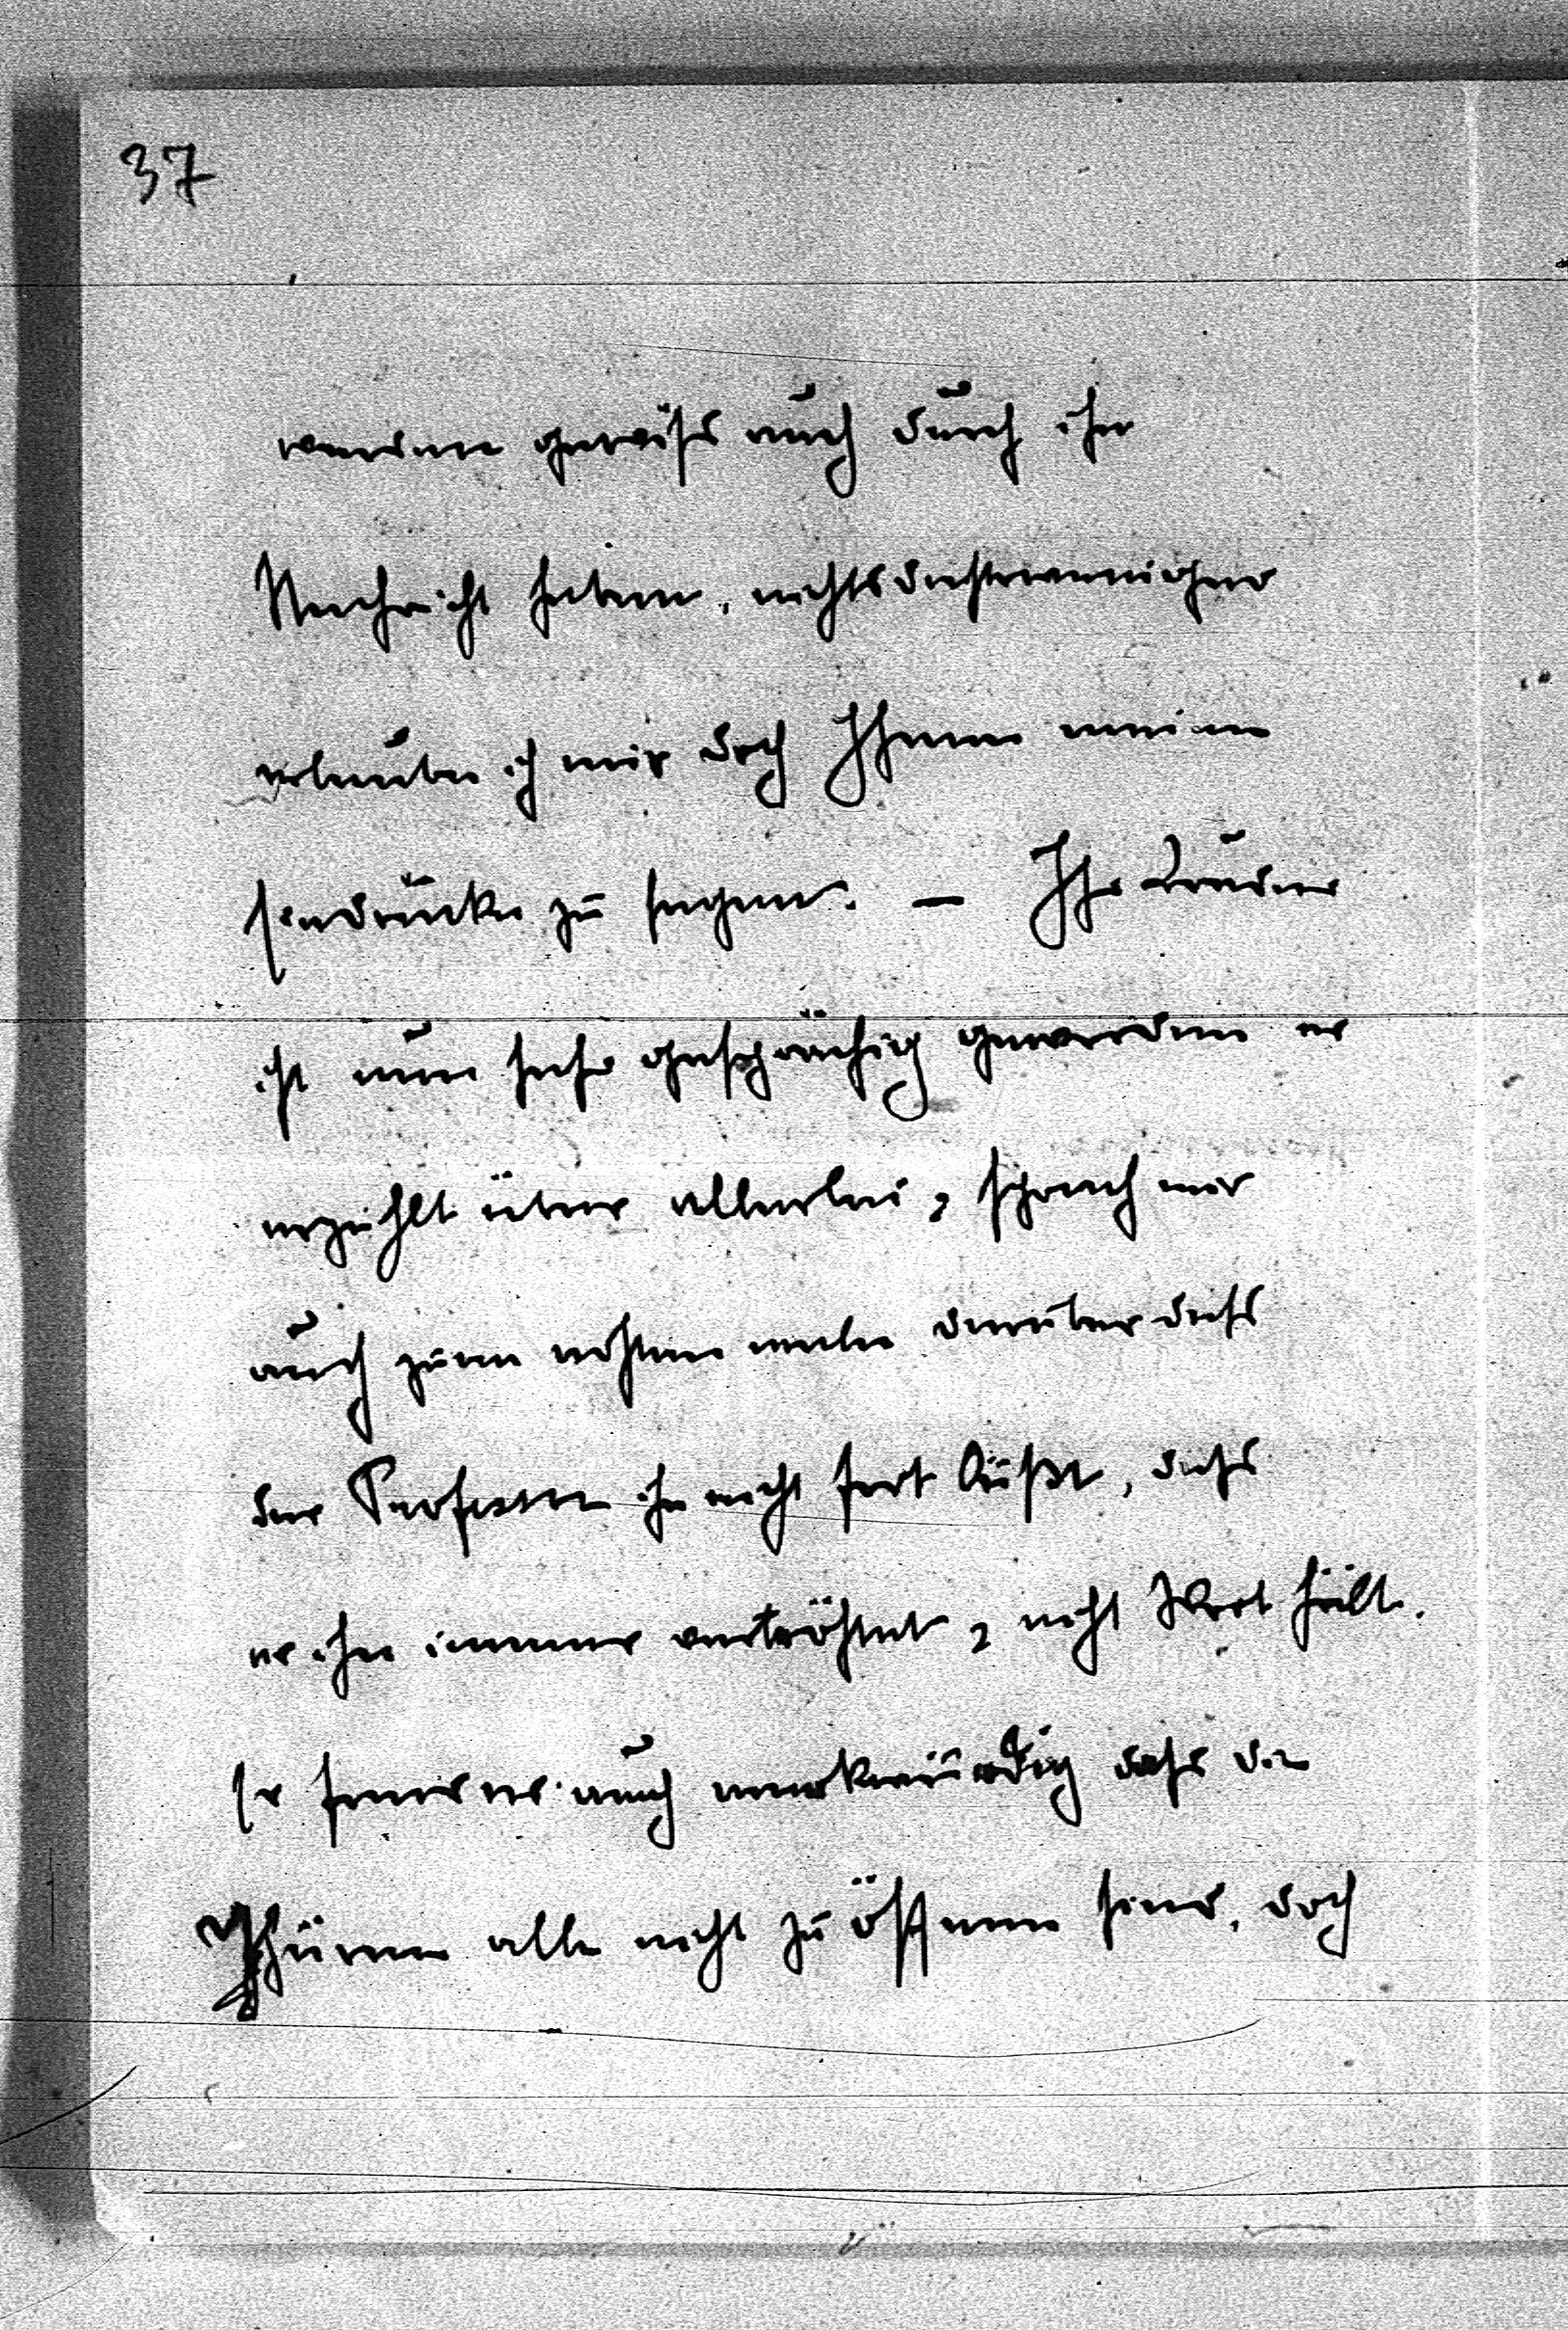 37
werden gewiß auch durch ihn
Nachricht haben, nichtsdestoweniger
erlaube ich mir doch Ihnen meine
Eindrücke zu sagen. — Ihr Bruder
ist nun sehr gesprächig geworden er
erzählt über allerlei, sprach mir
auch zum ersten male darüber daß
der Professor ihn nicht fort läßt, daß
er ihn immer vertröstet, nicht Wort hält.
Er fand es auch merkwürdig daß die
Thüren alle nicht zu öffnen sind, doch